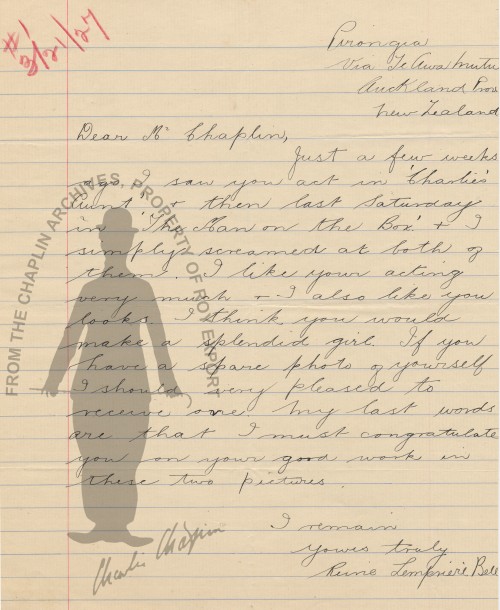 #1
8/21/27
Pirongia
via Te Awa Mutu
Auckland Prov
New Zealand
Dear Mr Chaplin,
Just a few weeks
ago I saw you act in 'Charlie's
Aunt' & then last Saturday
in 'The Man on the Box' & I
simply screamed at both of
them. I like your acting
very much & I also like you
looks. I think you would
make a splendid girl. If you
have a spare photo of yourself
I should very pleased to
receive one. My last words
are that I must congratulate
you on your good work in
these two pictures.
I remain
Yours truly
Lempriere Bell
FROM THE CHAPLIN ARCHIVES. PROPERTY OF ROY EXPORT
Charlie Chaplin